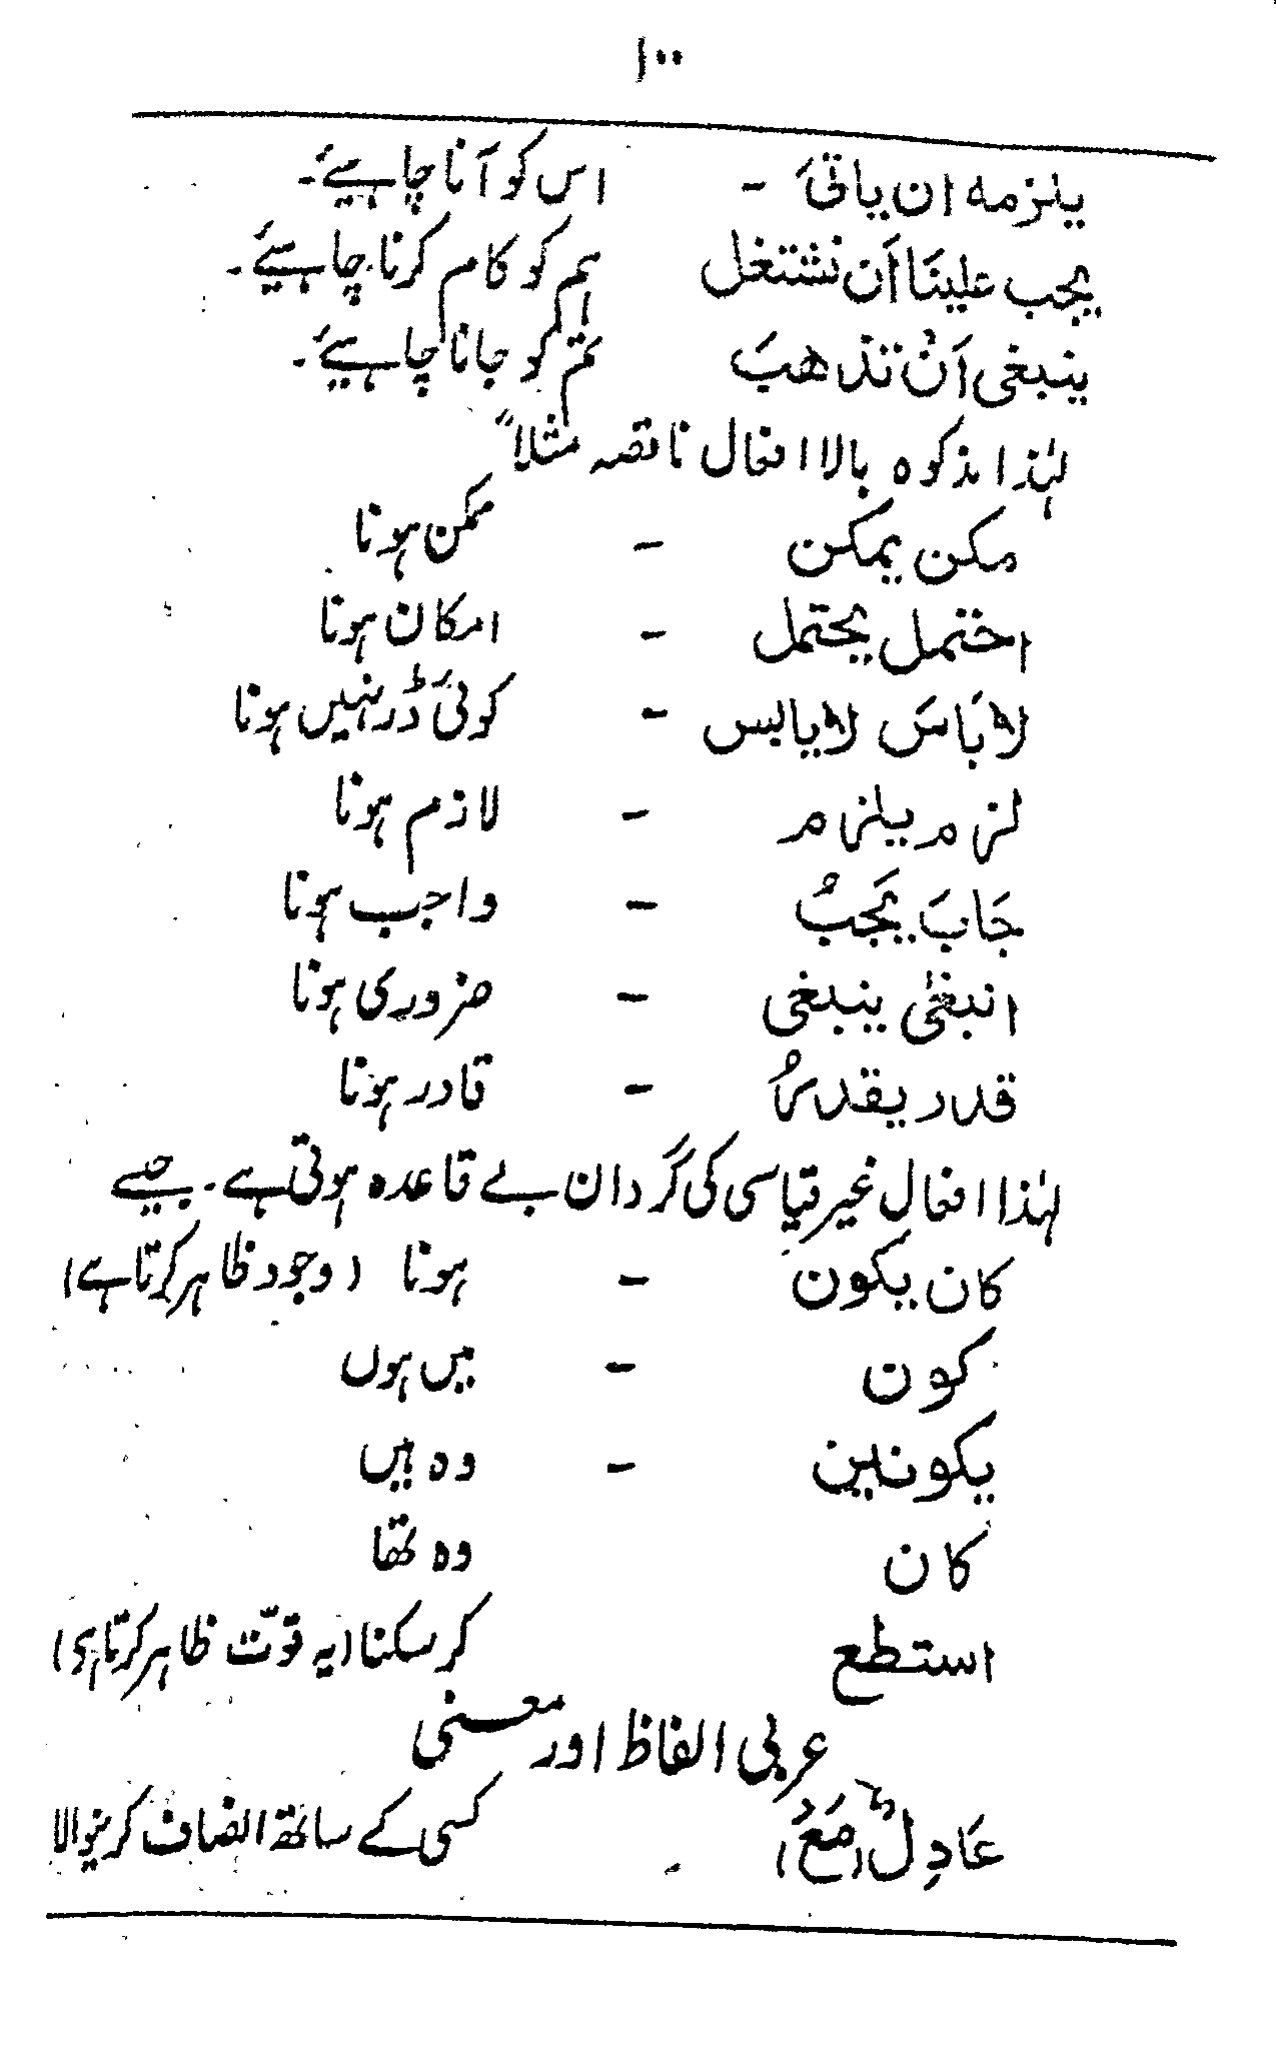 ۱۰۰
یلزمه ان یاتیَ - اس کو آنا چاہیئے۔
یجب علینَا اَن نشتغل ہم کو کام کرنا چاہیئے۔
ینبغی اَنْ تذهبَ تم کو جانا چاہیئے۔
لہٰذا مذکوہ بالا افعال ناقصہ مثلاً
مکن یمکن - ممکن ہونا
احتمل یحتمل - امکان ہونا
لا بَاسَ لا یابس - کوئی ڈر نہیں ہونا
لزم یلزم - لازم ہونا
جَابَ یَجبُ - واجب ہونا
انبغیٰ ینبغی - ضروری ہونا
قدر یقدرُ - قادر ہونا
لہٰذا افعال غیر قیاسی کی گردان بے قاعدہ ہوتی ہے۔ جیسے
کان یکون - ہونا (وجود ظاہر کرتا ہے)
کون - میں ہوں
یکونین - وہ ہیں
کان وہ تھا
استطع کر سکنا (یہ قوّت ظاہر کرتا ہی)
عربی الفاظ اور معنی
عَادِلٌ (مَعَ) - کسی کے ساتھ انصاف کرنیوالا